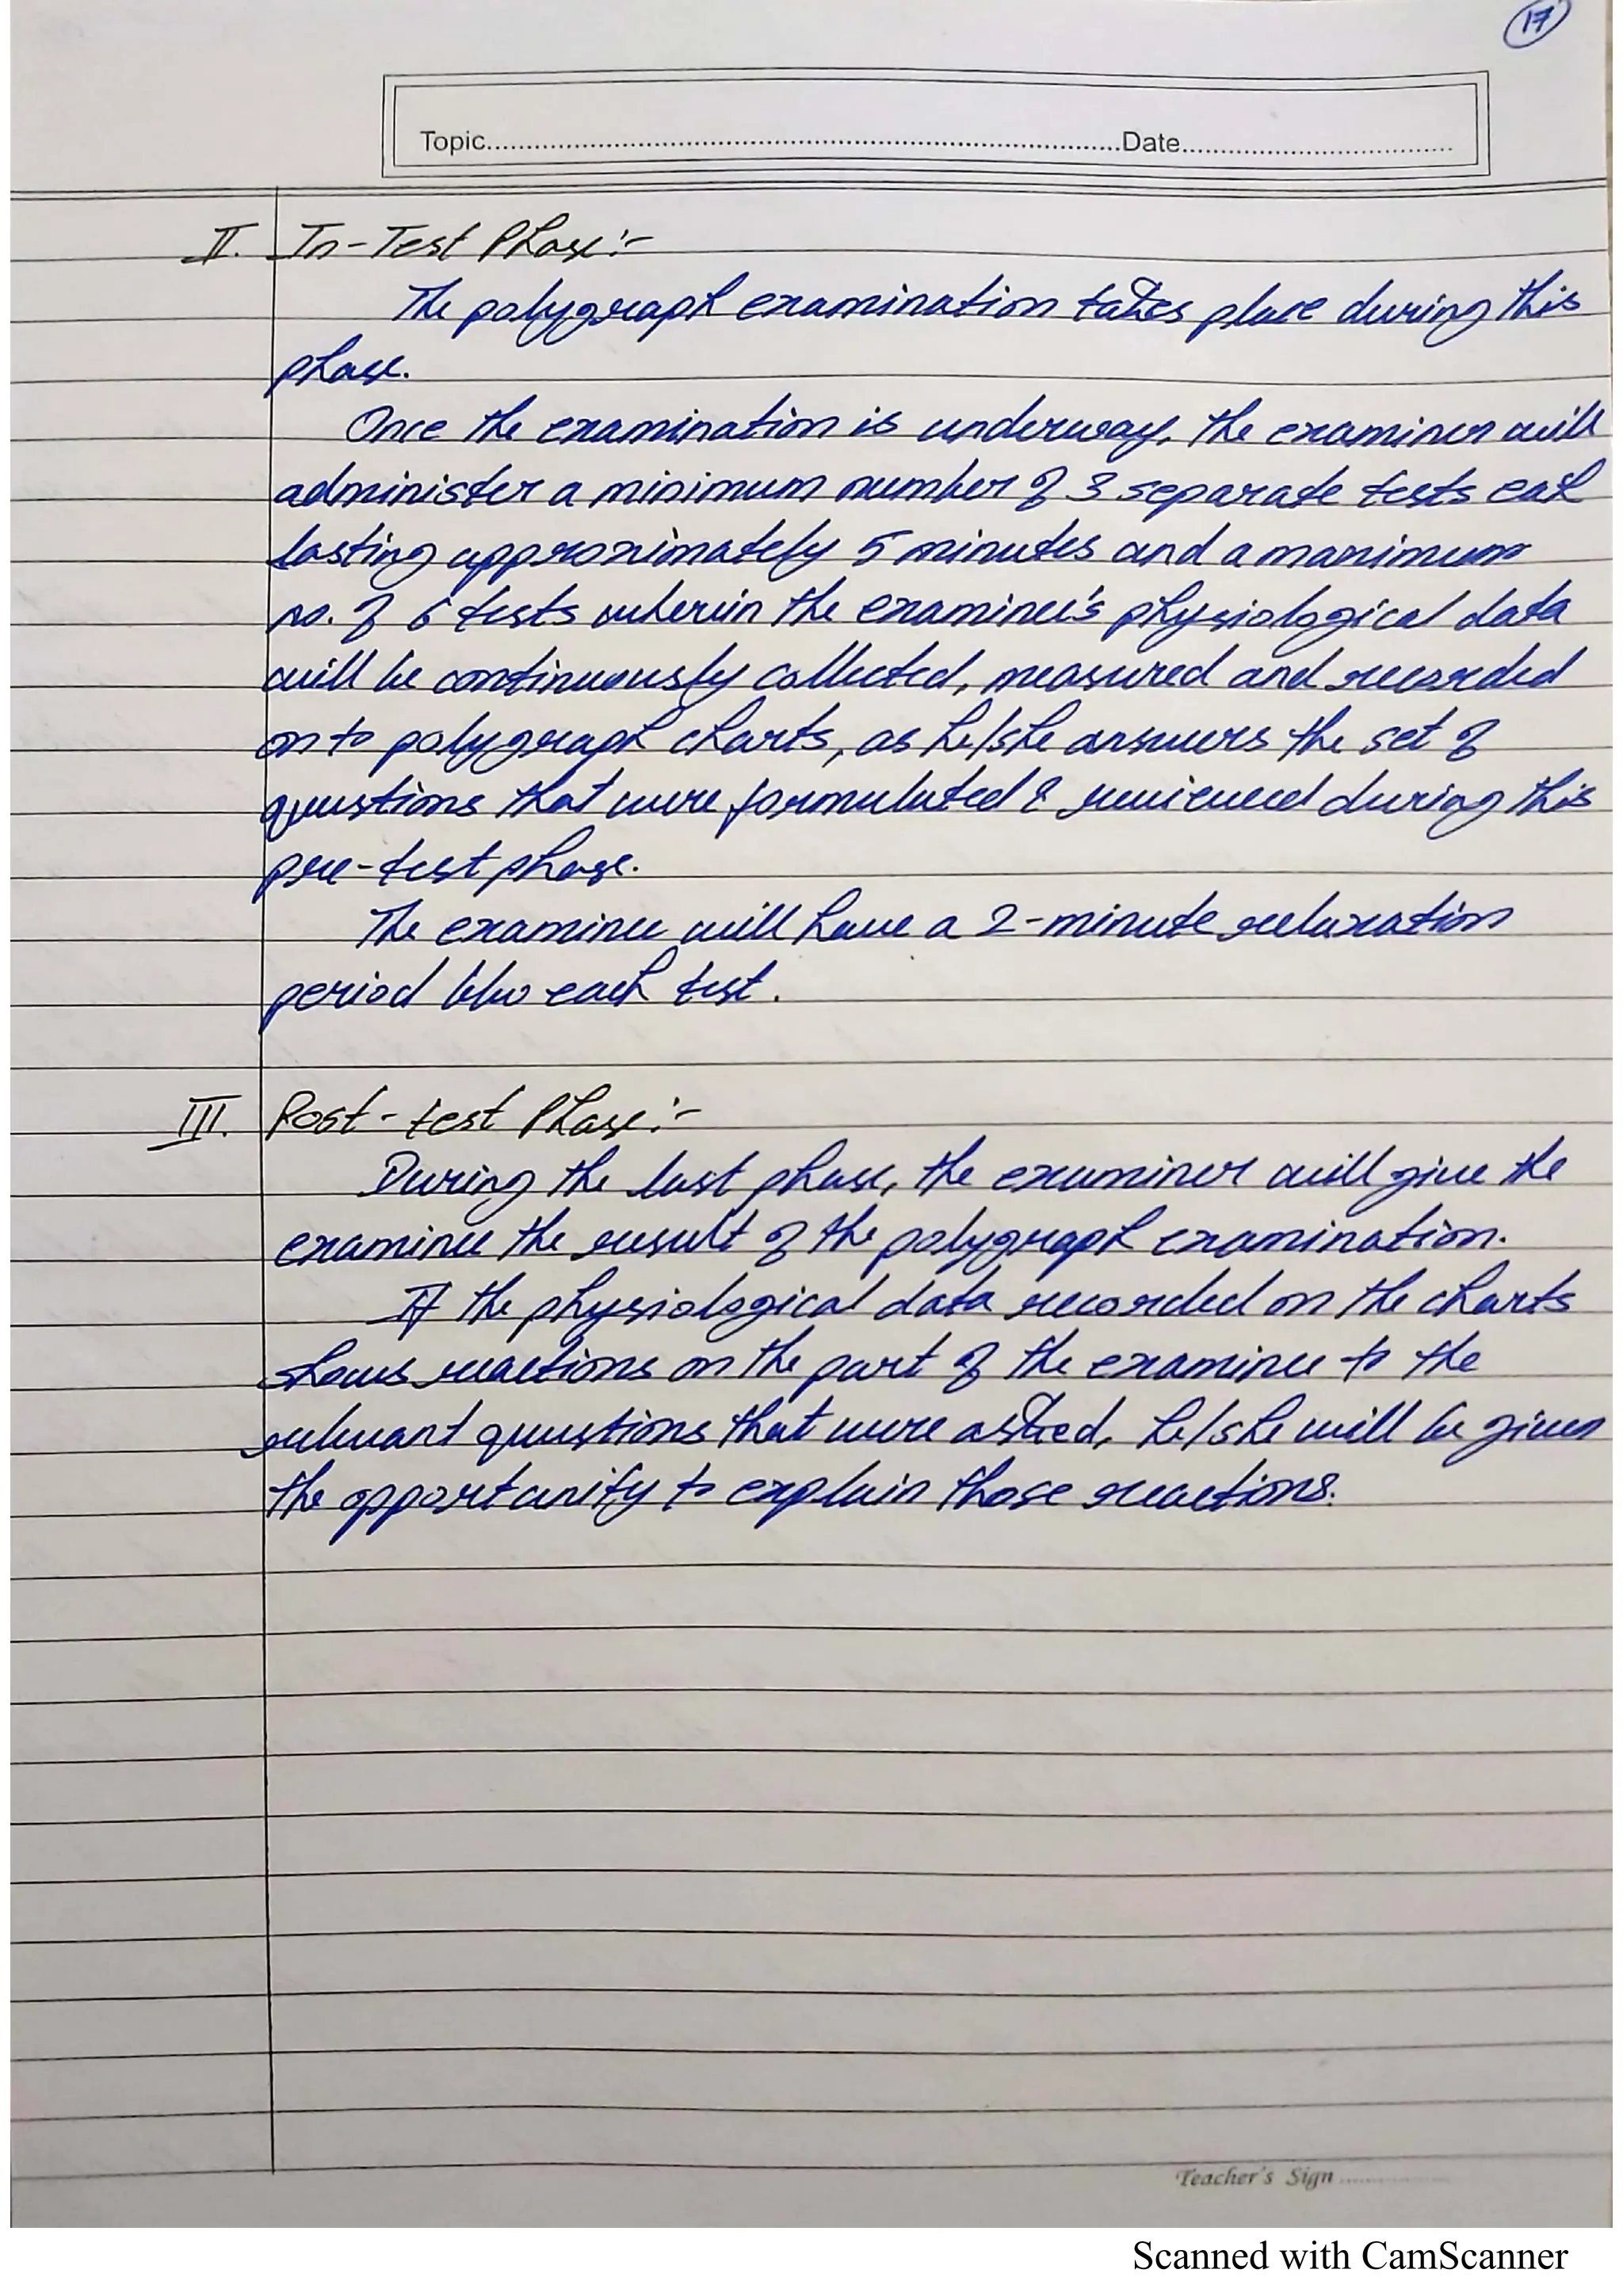 17
Topic..........Date..........
II. In-Test Phase:-
The polygraph examination takes place during this
phase.
Once the examination is underway, the examiner will
administer a minimum number of 3 separate tests each
lasting approximately 5 minutes and a maximum
no. of 6 tests wherein the examinee's physiological data
will be continuously collected, measured and recorded
on to polygraph charts, as he/she answers the set of
questions that were formulated & reviewed during this
pre-test phase.
The examinee will have a 2-minute relaxation
period b/w each test.
III. Post-test Phase:-
During the last phase, the examiner will give the
examinee the result of the polygraph examination.
If the physiological data recorded on the charts
shows reactions on the part of the examinee to the
relevant questions that were asked, he/she will be given
the opportunity to explain those reactions.
Teacher's Sign ..........
Scanned with CamScanner